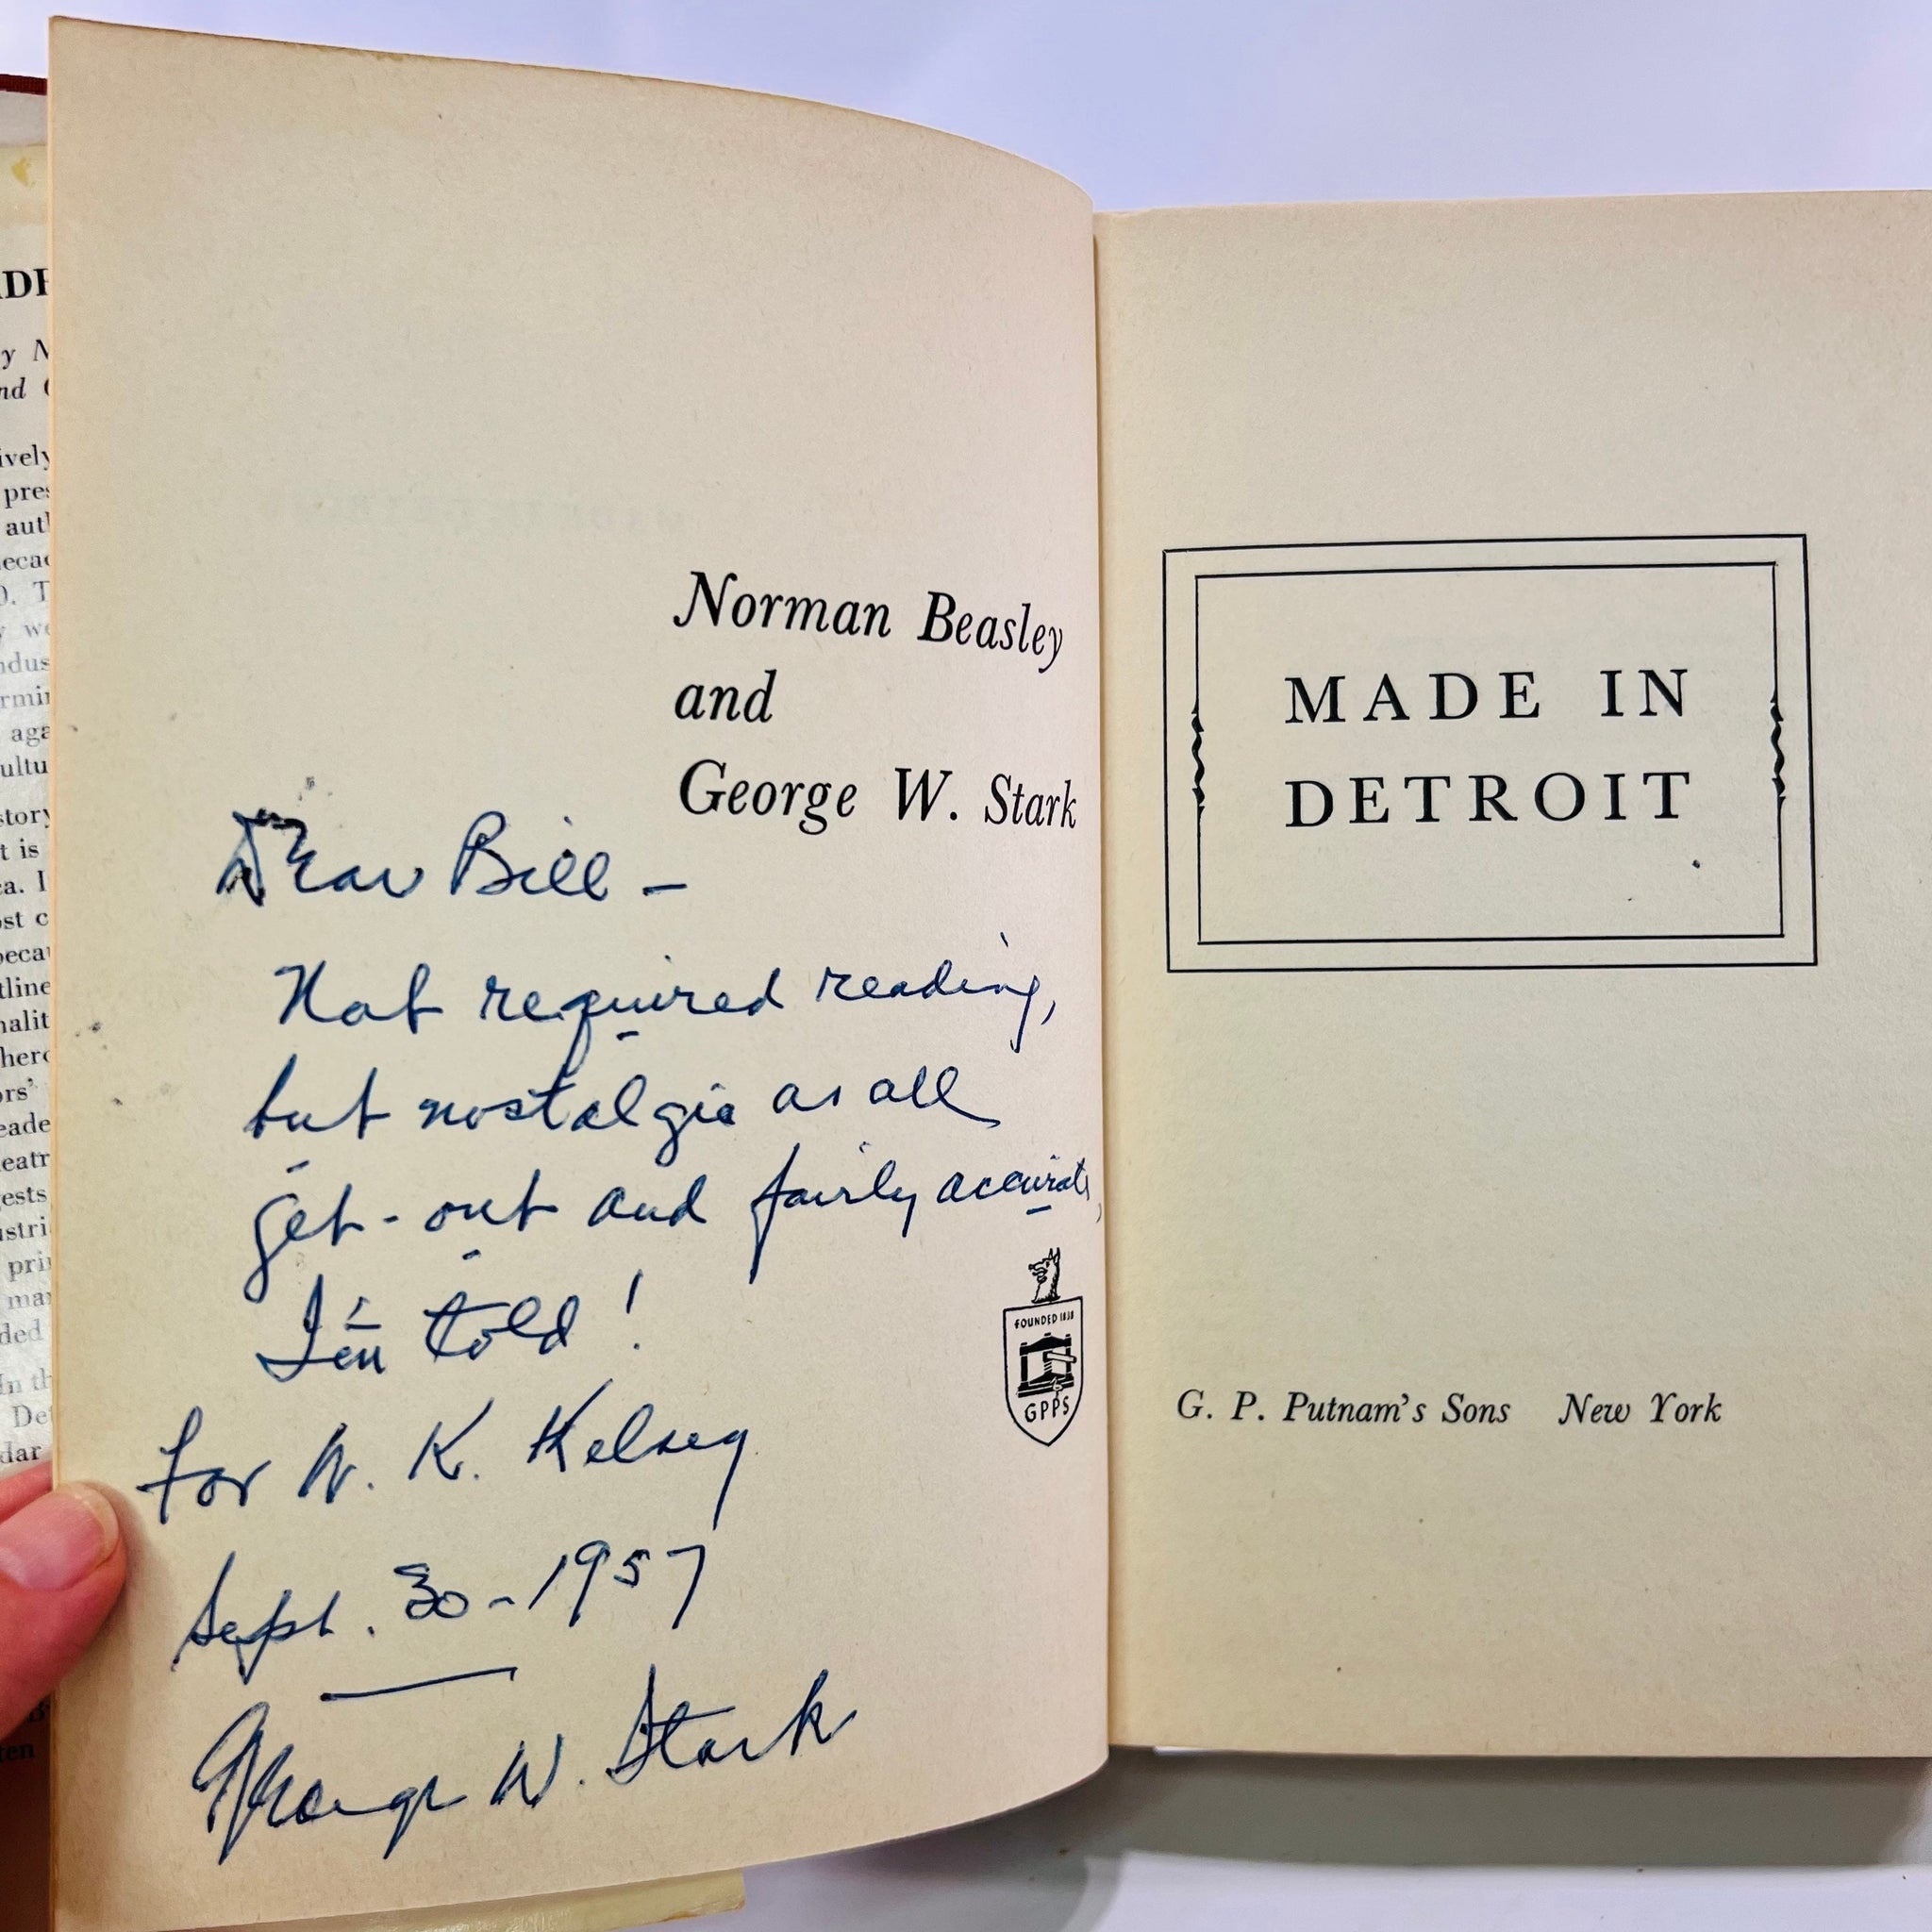 Norman Beasley
and
George W. Stark
Dear Bill -
Not required reading,
but nostalgic as all
get-out and fairly accurate,
I'm told!
For W. K. Kelsey
Sept. 30-1957
George W. Stark
FOUNDED 1838
GPPS
MADE IN
DETROIT
G. P. Putnam's Sons New York